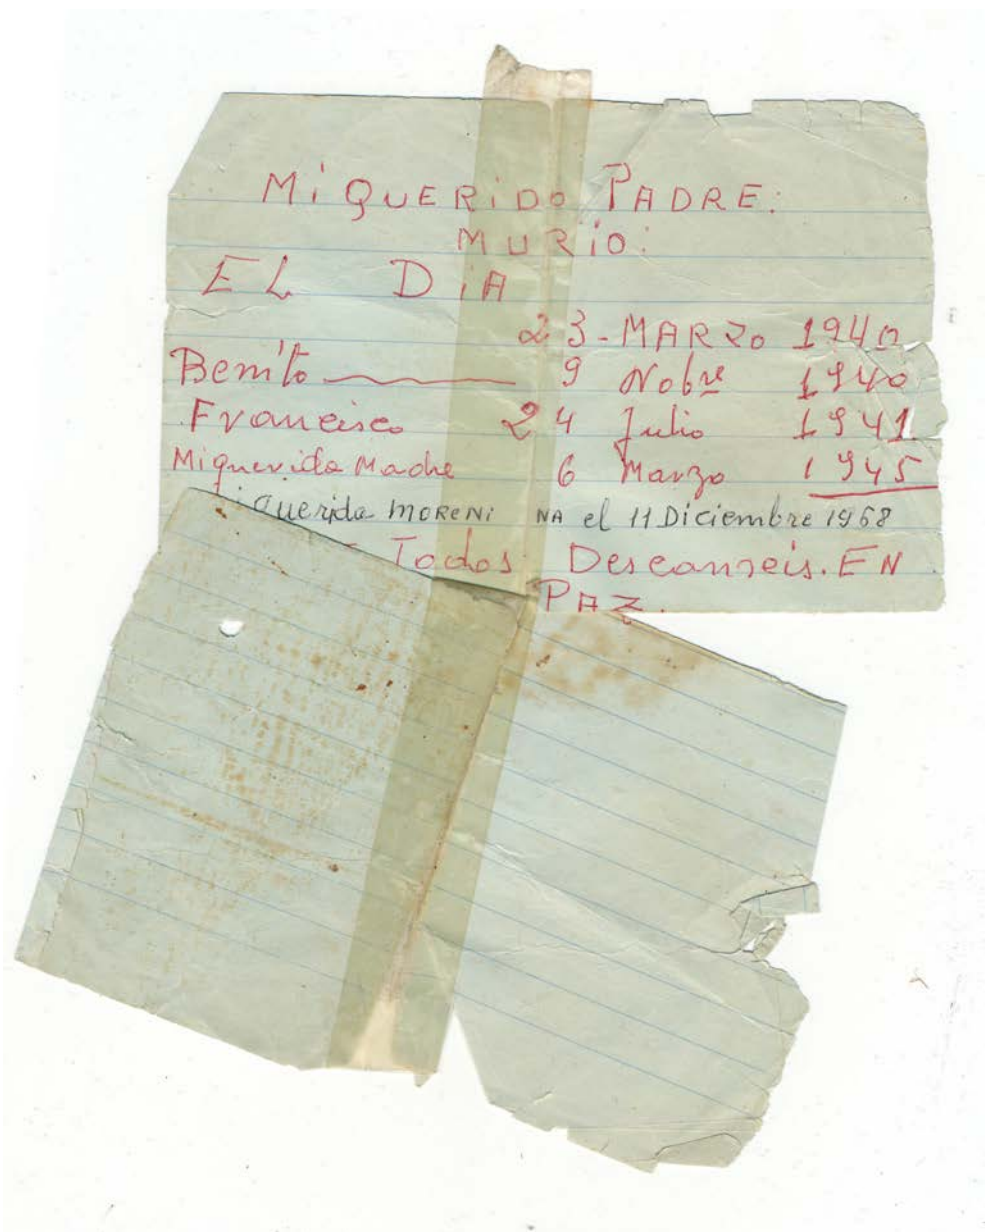 Mi QUERiDO PADRE:
MURIO:
EL DiA
23-MARZO 1940
Benito 9 Nobre 1940
Francisco 24 Julio 1941
Mi querida Madre 6 Marzo 1945
querida MORENi NA el 11 Diciembre 1968
Todos Descanseis. EN
PAZ.